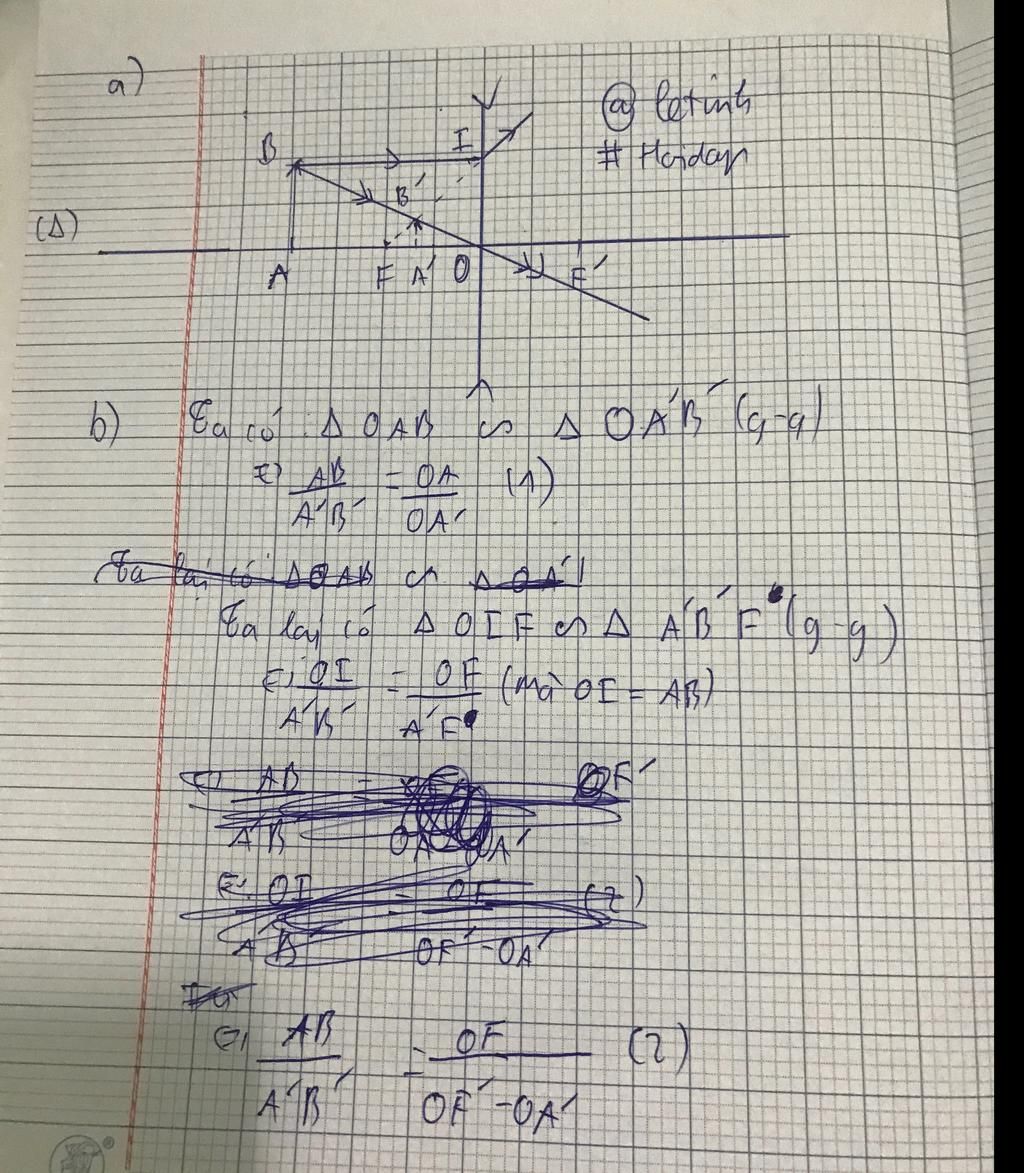 a)
@ letinh
# Hoidap
B I
B'
(Δ)
A F A' O F'
b) Ta có : Δ OAB ∽ Δ OA'B' (g-g)
=> AB / A'B' = OA / OA' (1)
Ta lại có ΔOAB ∽ ΔOA'
Ta lại có Δ OIF ∽ Δ A'B'F (g-g)
=> OI / A'B' = OF / A'F (mà OI = AB)
AB = OF'
A'B' OA OA'
=> OI / A'B' = OF / OF' - OA' (2)
Ta
=> AB / A'B' = OF / OF' - OA' (2)